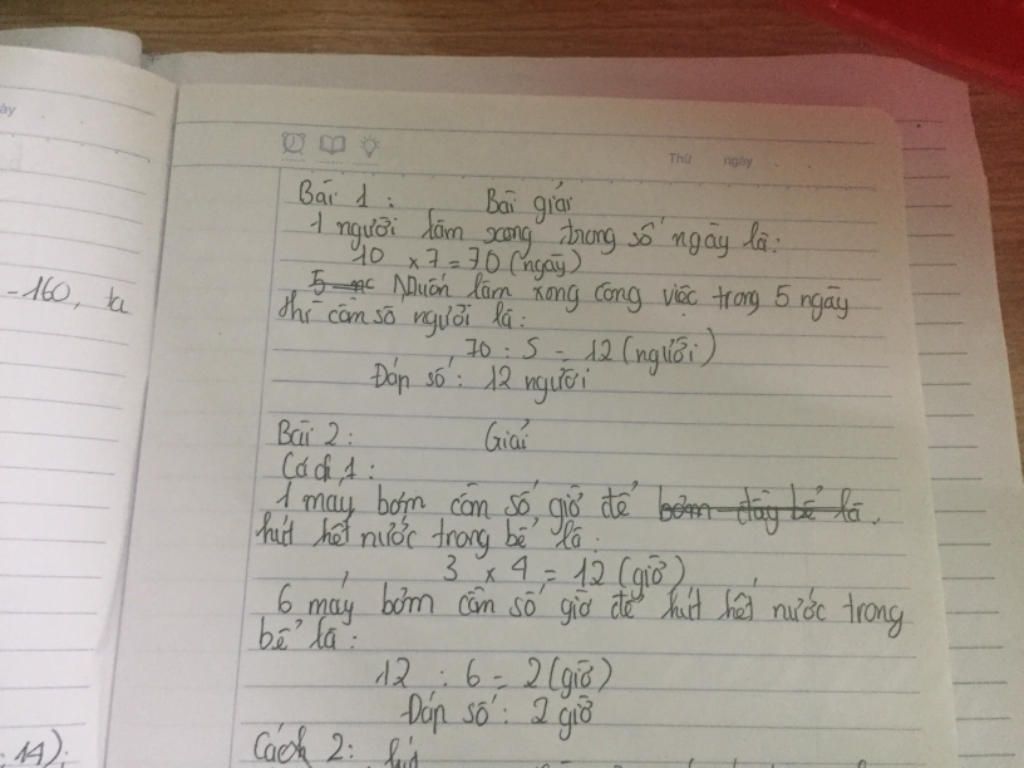 ày
Thứ ngày
Bài 1 : Bài giải
1 người làm xong trong số ngày là:
10 x 7 = 70 (ngày)
Muốn làm xong công việc trong 5 ngày
thì cần số người là:
70 : 5 = 12 (người)
Đáp số : 12 người
- 160, ta
Bài 2 : Giải
Cách 1 :
1 may bơm cần số giờ để bơm đầy bể là.
hút hết nước trong bể là:
3 x 4 = 12 (giờ)
6 máy bơm cần số giờ để hút hết nước trong
bể là:
12 : 6 = 2 (giờ)
Đáp số : 2 giờ
Cách 2 :
; 14);